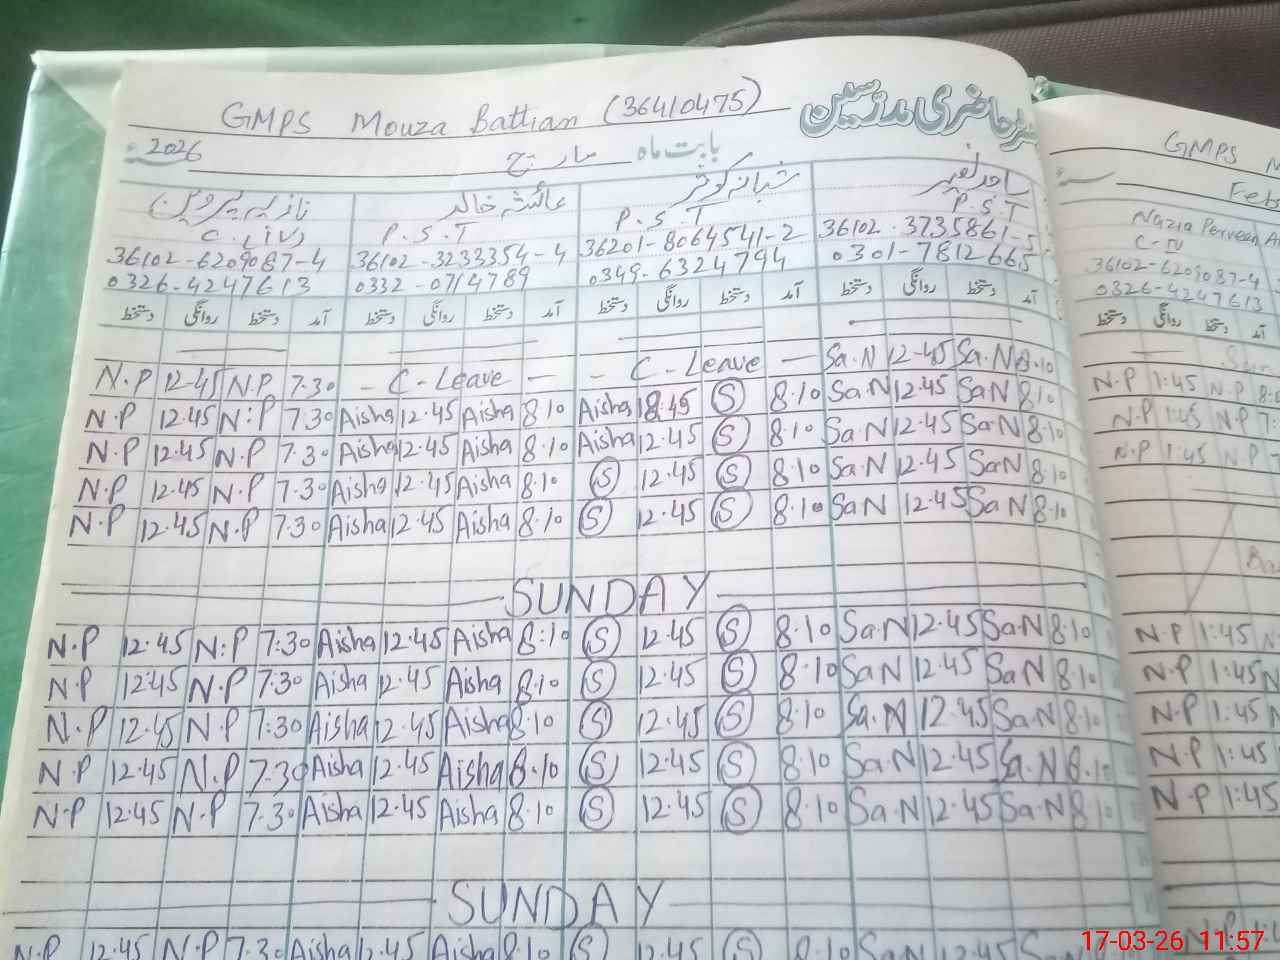 رجسٹر حاضری مدرسین
GMPS Mouza Battian (36410475)
بابت ماہ مارچ 2026
ساجد نصیر شبانہ کوثر عائشہ خالد نازیہ پروین
P.S.T P.S.T P.S.T
36102-6209087-4 36102-3233354-4 36201-8064541-2 36102-3735861-5
0326-4247613 0332-0714789 0349-6324794 0301-7812665
آمد دستخط روانگی دستخط آمد دستخط روانگی دستخط آمد دستخط روانگی دستخط آمد دستخط روانگی دستخط
N.P 12-45 N.P 7.30 - C-Leave - - C-Leave - Sa.N 12-45 Sa.N 8.10
N.P 12.45 N.P 7.30 Aisha 12.45 Aisha 8.10 Aisha 12.45 S 8.10 Sa.N 12.45 Sa.N 8.10
N.P 12.45 N.P 7.30 Aisha 12.45 Aisha 8.10 Aisha 12.45 S 8.10 Sa.N 12.45 Sa.N 8.10
N.P 12.45 N.P 7.30 Aisha 12.45 Aisha 8.10 S 12.45 S 8.10 Sa.N 12.45 Sa.N 8.10
N.P 12.45 N.P 7.30 Aisha 12.45 Aisha 8.10 S 12.45 S 8.10 Sa.N 12.45 Sa.N 8.10
SUNDAY
N.P 12.45 N.P 7:30 Aisha 12.45 Aisha 8:10 S 12.45 S 8.10 Sa.N 12.45 Sa.N 8.10
N.P 12.45 N.P 7:30 Aisha 12.45 Aisha 8.10 S 12.45 S 8.10 Sa.N 12.45 Sa.N 8.10
N.P 12.45 N.P 7:30 Aisha 12.45 Aisha 8.10 S 12.45 S 8.10 Sa.N 12.45 Sa.N 8.10
N.P 12.45 N.P 7.30 Aisha 12.45 Aisha 8.10 S 12.45 S 8.10 Sa.N 12.45 Sa.N 8.10
N.P 12.45 N.P 7.30 Aisha 12.45 Aisha 8.10 S 12.45 S 8.10 Sa.N 12.45 Sa.N 8.10
SUNDAY
N.P 12.45 N.P 7.30 Aisha 12.45 Aisha 8.10 S 12.45 S 8.10 Sa.N 12.45
GMPS
Nazia Perveen
C-IV
36102-6209087-4
0326-4247613
دستخط روانگی دستخط آمد
N.P 1:45 N.P
N.P 1:45 N.P
N.P 1:45 N.P
N.P 1:45
N.P 1:45
N.P 1:45
N.P 1:45
N.P 1:45
17-03-26 11:57